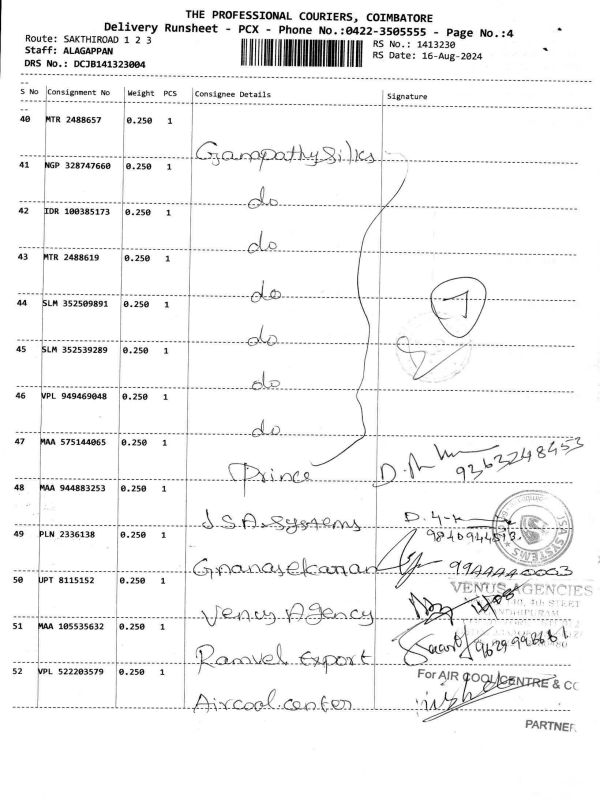 THE PROFESSIONAL COURIERS, COIMBATORE
Delivery Runsheet - PCX - Phone No.:0422-3505555 - Page No.:4
Route: SAKTHIROAD 1 2 3
Staff: ALAGAPPAN
DRS No.: DCJB141323004
RS No.: 1413230
RS Date: 16-Aug-2024
S No Consignment No Weight PCS Consignee Details Signature
40 MTR 2488657 0.250 1
Gampathy silks
41 NGP 328747660 0.250 1
do
42 IDR 100385173 0.250 1
do
43 MTR 2488619 0.250 1
do
44 SLM 352509891 0.250 1
do
45 SLM 352539289 0.250 1
do
46 VPL 949469048 0.250 1
do
47 MAA 575144065 0.250 1
Prince 9363248453
48 MAA 944883253 0.250 1
J.S.A. Systems
JSA SYSTEMS
49 PLN 2336138 0.250 1
Gnanasekaran
50 UPT 8115152 0.250 1
Vency Agency
VENUS AGENCIES
4th STREET
51 MAA 105535632 0.250 1
Ramvel Export
52 VPL 522203579 0.250 1
Aircool.center
For AIR COOL CENTRE & CO
PARTNER